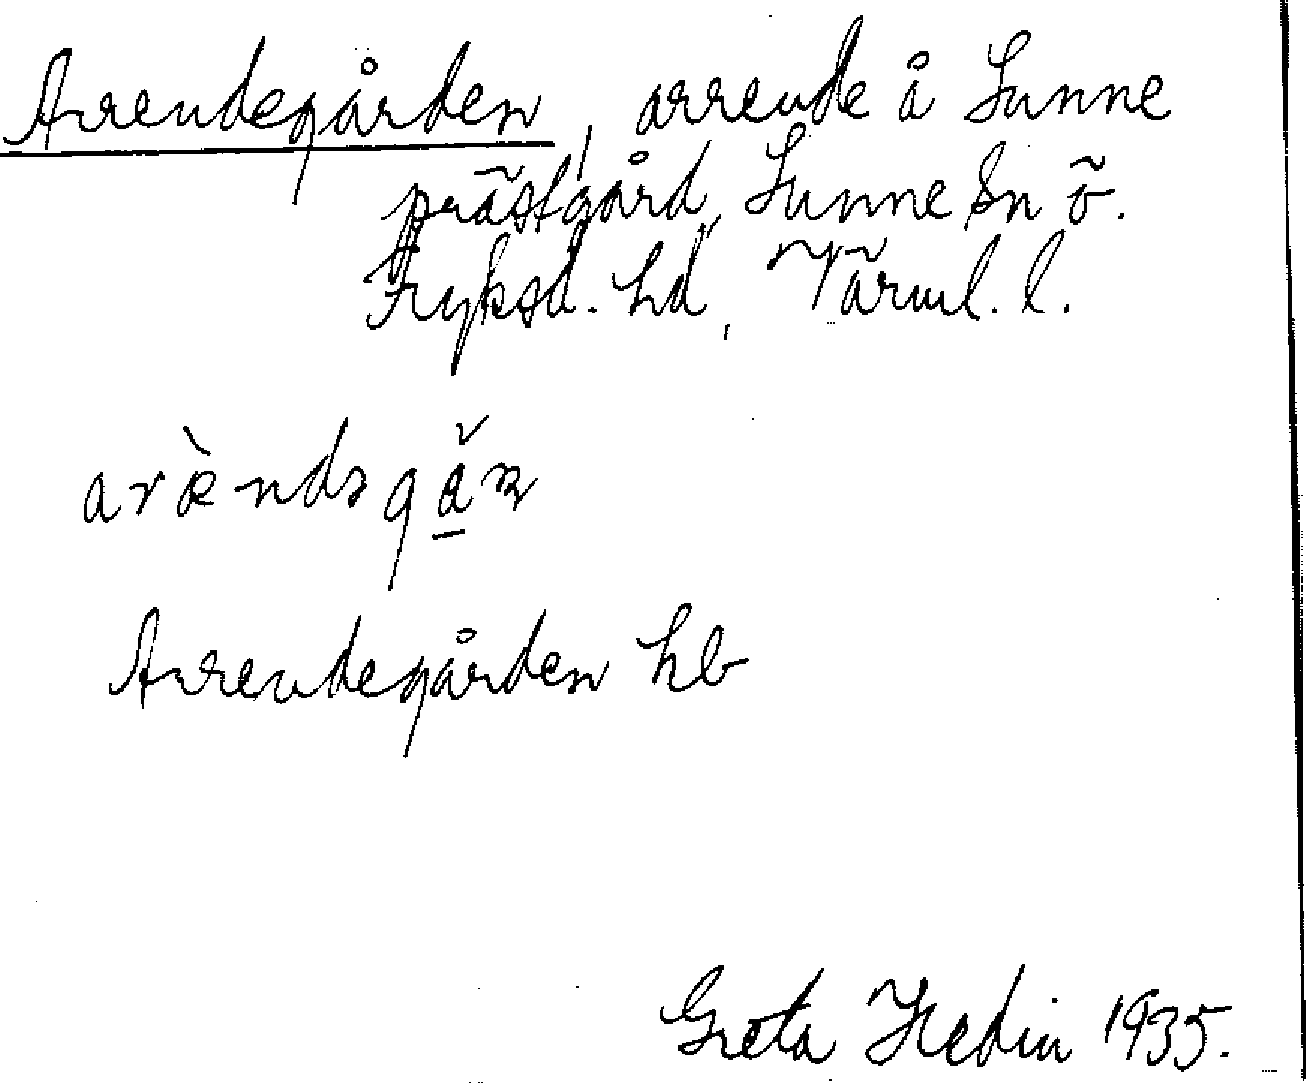 Arrendegården, arrende å Sunne
prästgård, Sunne sn Ö.
Fryksd. hd, Värml. l.
Arrendegården hb
Greta Hedin 1935.